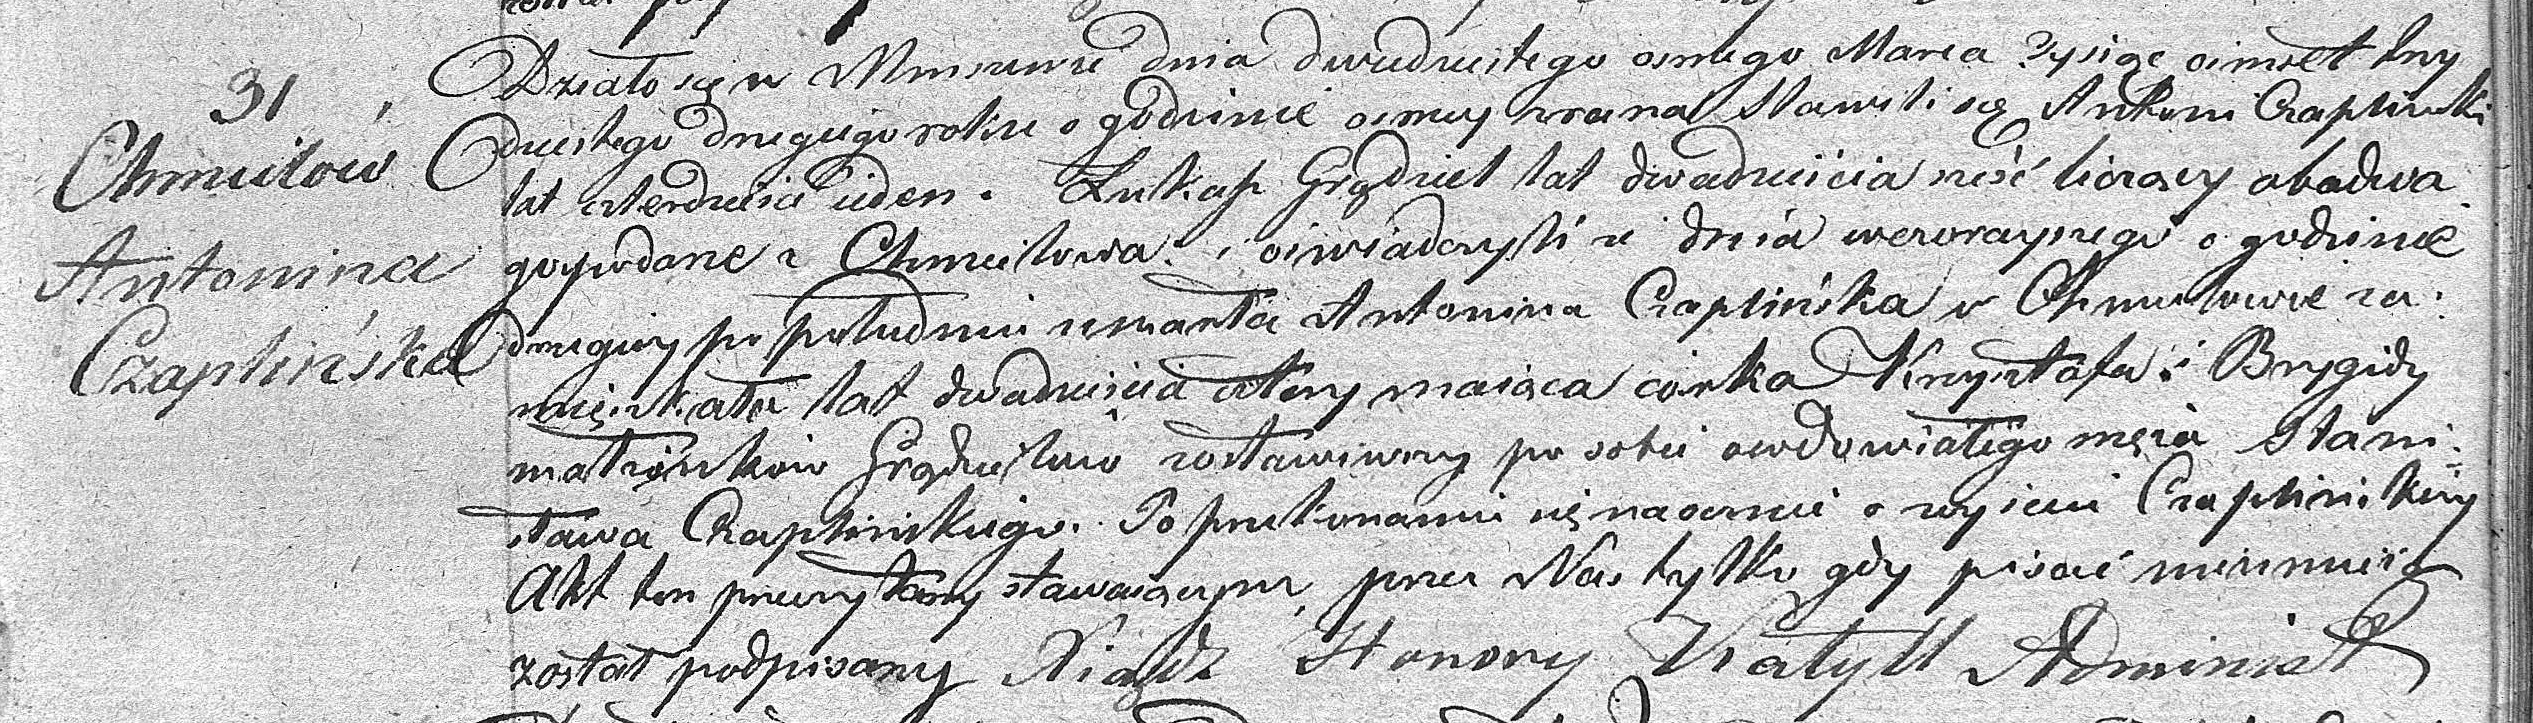 31
Chmielów
Antonina
Czaplińska
Działo się w dnia dwudziestego osmego Marca Tysiąc ośmset trzy
dziestego drugiego roku o godzinie osmey zrana Stawili się Antoni Czapliński
lat czterdzieści ieden i Łukasz Grądziel lat dwadzieścia sześć liczący obadwa
gospodarze z Chmielowa i oświadczyli że dnia wczorayszego o godzinie
drugiey po południu umarła Antonina Czaplińska w Chmielowie za:
mięszkała lat dwadzieścia cztery maiąca córka Krzysztofa i Brygidy
małżonków Grądzielów zostawiwszy po sobie owdowiałego męża Stani:
sława Czaplińskiego. Po przekonaniu się naocznie o zeyściu Czaplińskiey
Akt ten przeczytany stawaiącym, przez Nas tylko gdy pisać nieumieią
został podpisany Xiądz Honory Administ